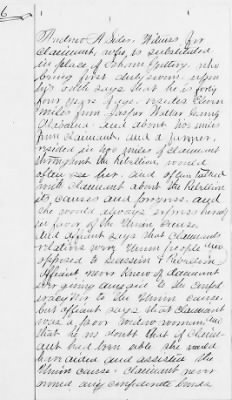 6
Andrew H. Witness for
Claimant, who is substituted
in place of
being first duly sworn upon
his oath says that he is forty
four years of age. resides eleven
miles from Jasper Walker County
Alabama and about two miles
from claimant, and a farmer,
resided in two miles of claimant
throughout the Rebellion would
often see her. and often talked
with claimant about the Rebellion
its causes and progress. and
she would always express herself
in favor of the Union Cause.
and affiant says that claimants
relatives were Union people and
opposed to Secession & Rebellion
Affiant never knew of claimant
to the
to the Union cause.
but affiant says that claimant
was a poor woman and
that he no doubt that if claim-
ant had been able she would
have aided and assisted the
Union cause. Claimant never
owned any confederate bonds